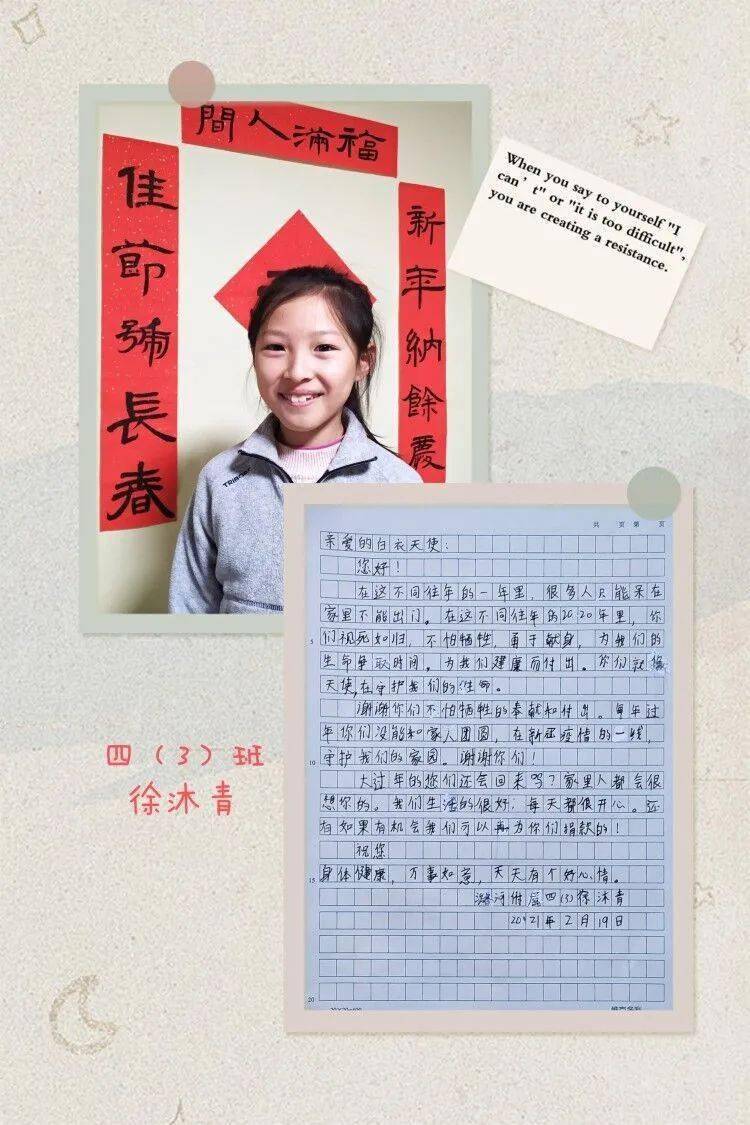 福滿人間
新年納餘慶
佳節號長春
When you say to yourself "I
can't" or "it is too difficult",
you are creating a resistance.
TRIBO
共 页 第 页
亲爱的白衣天使:
您好!
在这不同往年的一年里,很多人只能呆在
家里不能出门。在这不同往年的2020年里,你
5 们视死如归,不怕牺牲,勇于献身,为我们的
生命争取时间。为我们健康而付出。你们就像
天使,在守护我们的生命。
谢谢你们不怕牺牲的奉献和付出。每年过
年你们没能和家人团圆,在新冠疫情的一线,
10 守护我们的家园。谢谢你们!
大过年的您们还会回来吗?家里人都会很
想你的。我们生活的很好,每天都很开心。还
有如果有机会我们可以再为你们捐款的!
祝您
15 身体健康,万事如意,天天有个好心情。
潞河附属四(3)徐沐青
2021年2月19日
20
四(3)班
徐沐青